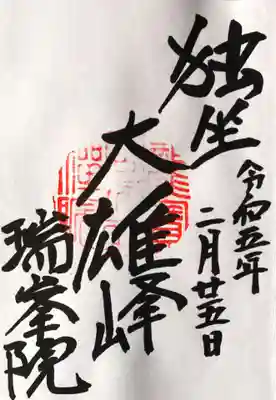 令和五年
二月廿五日
独坐
大雄峰
瑞峯院